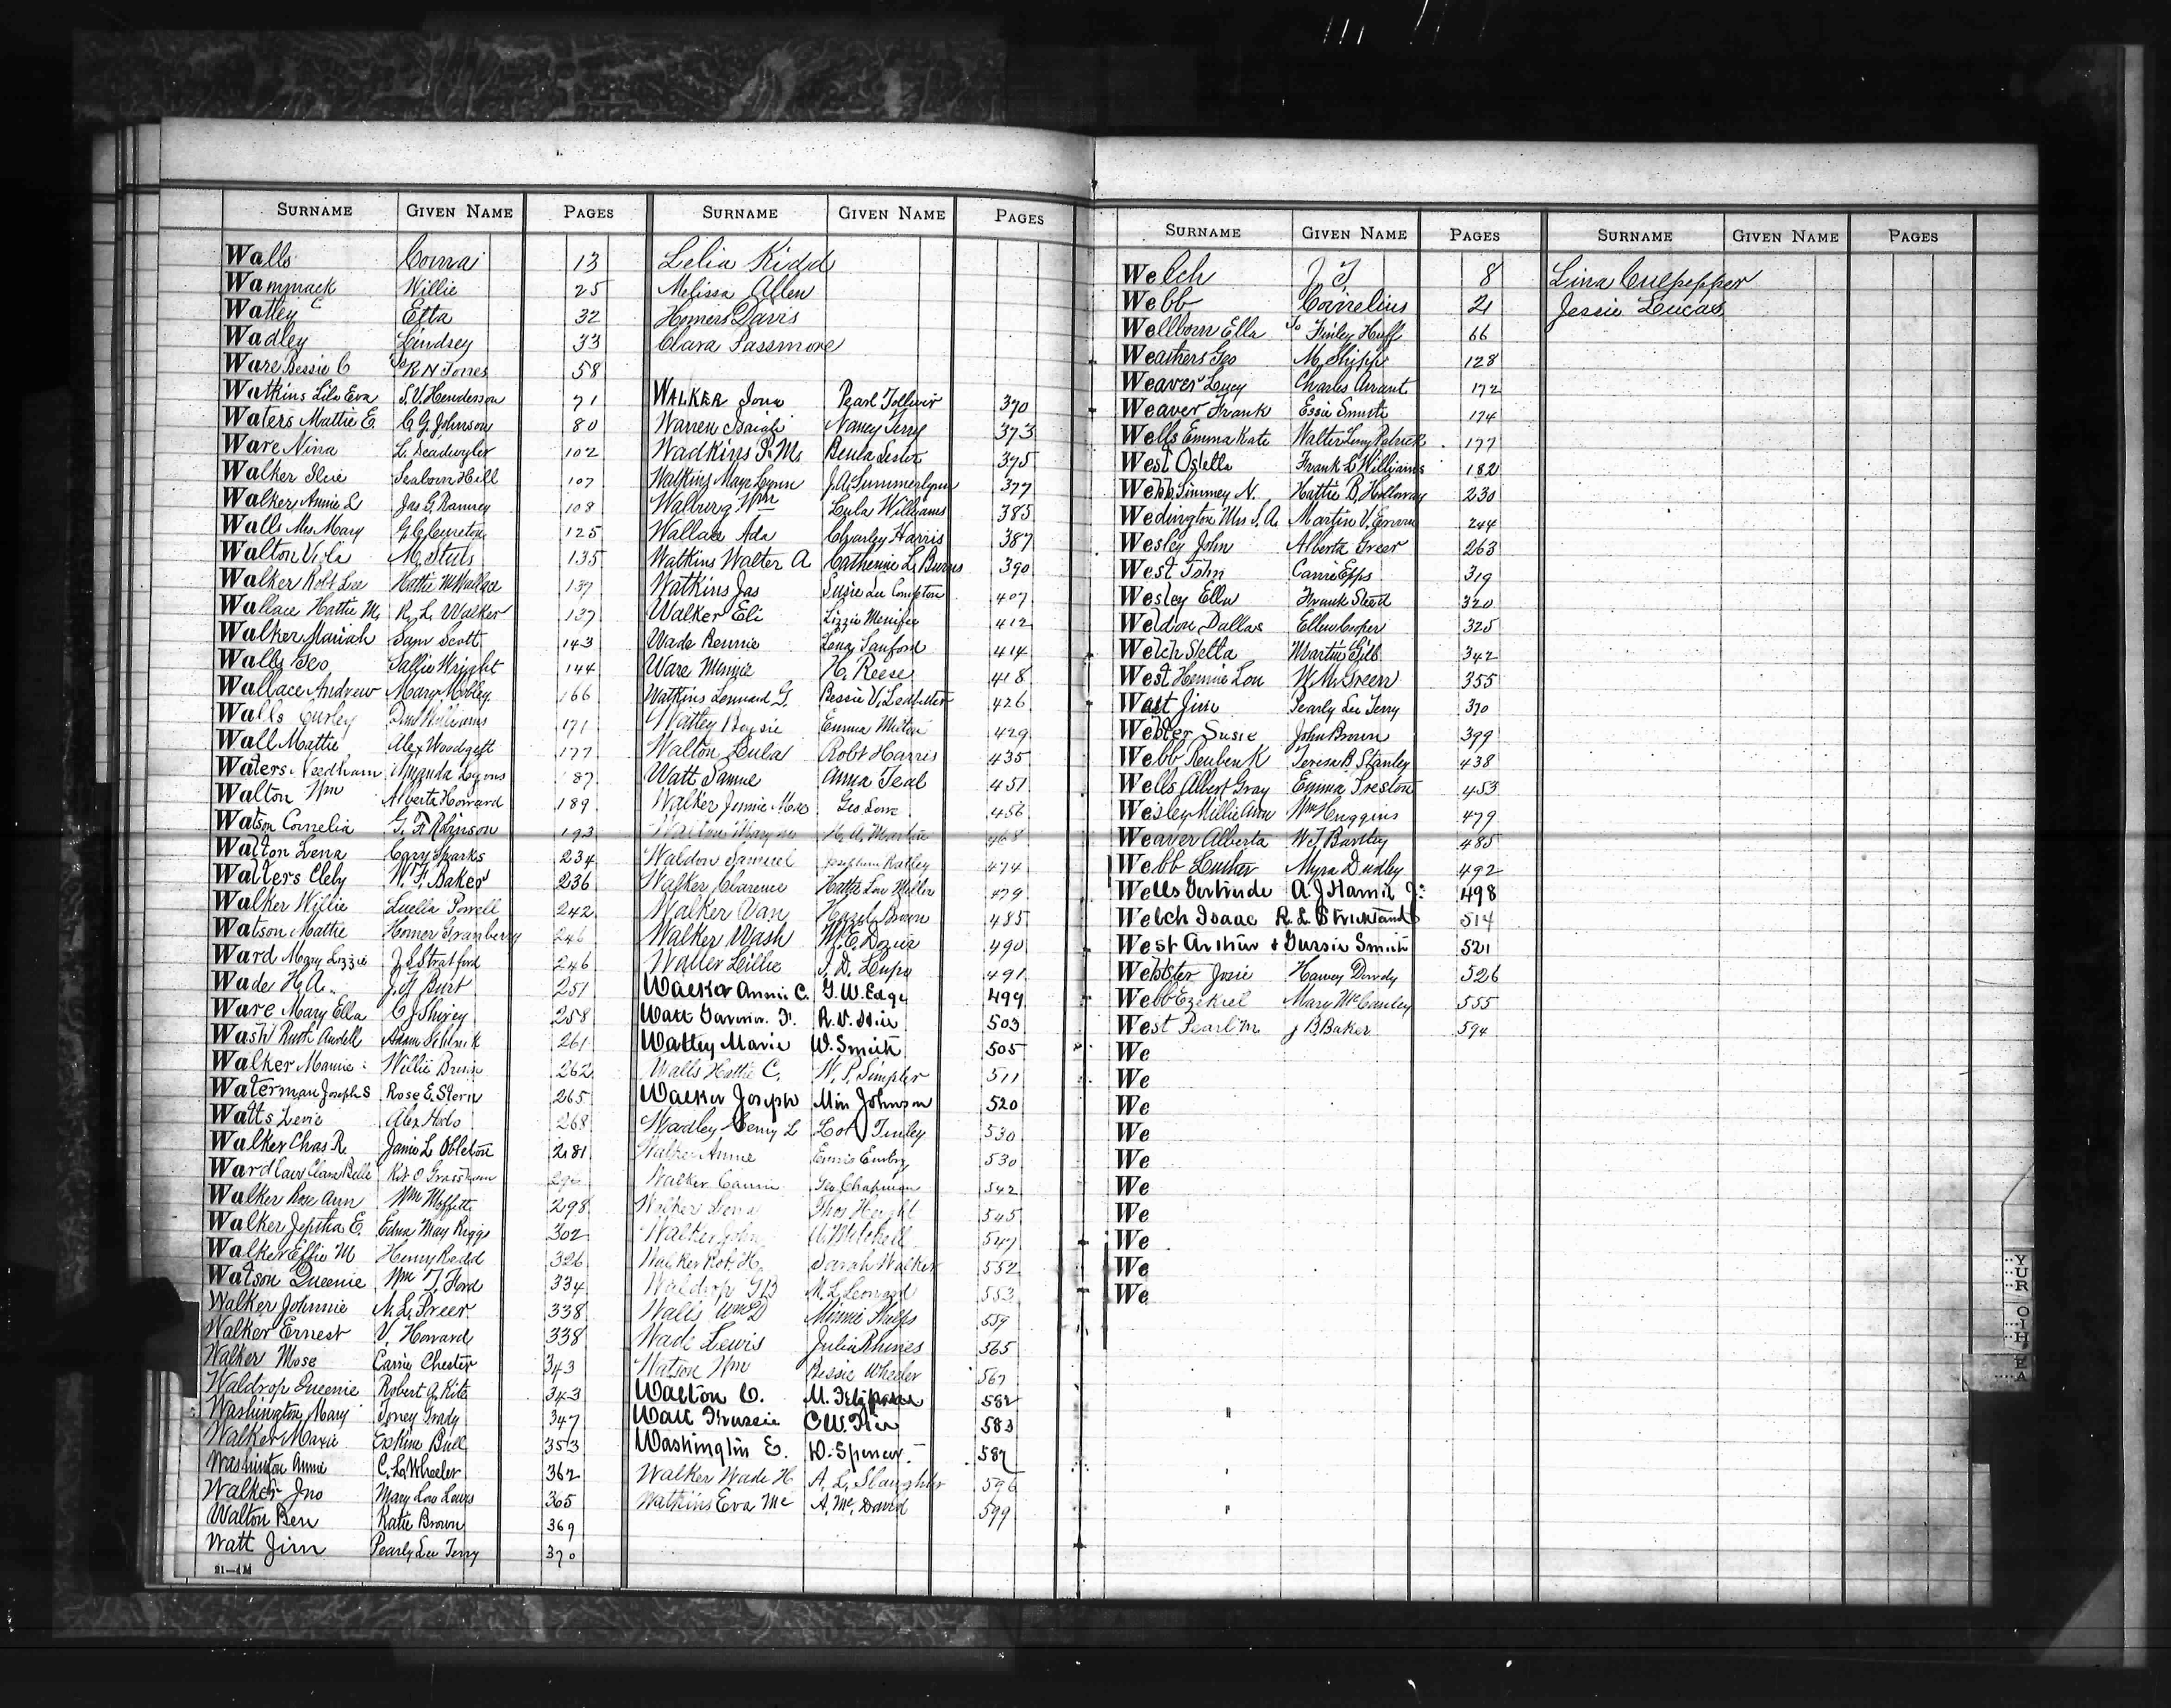 SURNAME GIVEN NAME PAGES SURNAME GIVEN NAME PAGES
Walls 13 Lelia Kidd
Wammack Willie 25 Melissa Allen
Watley Etta 32 Homers Davis
Wadley Lindsey 33 Clara Passmore
Ware Bessie C To R N Jones 58
Watkins Lila Eva S. V. Henderson 71
Waters Mattie E C G Johnson 80
Ware Nina L. Deadwyler 102
Walker Ilue Seaborn Hill 107
Walker Annie L Jas G. Ranney 108
Walls Mrs Mary G. C. Cureton 125
Walton Viola M. Stats 135
Walker Robt Lee Hattie M Wallace 137
Wallace Hattie M. R. L. Walker 137
Walker Mariah Sam Scott 143
Walls Geo Sallie Wright 144
Wallace Andrew Mary Mobley 166
Walls Curley Williams 171
Wall Mattie Alex Woodgett 177
Waters Needham Amanda Lyons 187
Walton Wm Alberta Howard 189
Watson Cornelia G. F. Robinson 193
Walton Lena Cary Sparks 234
Walters Cleby W. F. Baker 236
Walker Willie Luella Powell 242
Watson Mattie Homer Granberry 246
Ward Mary Lizzie J. S. Stratford 246
Wade H. A. J. F. Burt 251
Ware Mary Ella C J Shirey 258
Wash Ruth Ardell Adam 261
Walker Mamie Willie Brown 262
Waterman Joseph S Rose E. Stern 265
Watts Levie Alex Hodo 268
Walker Chas R. Janie L Obleton 281
Ward Clara Belle Kit O
Walker Rose Ann Wm Moffett 298
Walker Jeptha E. Edna May Riggs 302
Walker Effie M Henry Redd 326
Watson Queenie Wm T. Ford 334
Walker Johnnie M. L. Greer 338
Walker Ernest V. Howard 338
Walker Mose Carrie Chester 343
Waldrop Queenie Robert A. Kite 343
Washington Mary Toney Grady 347
Walker Maxie Erskine Bull 353
Washington Annie C. L. Wheeler 362
Walker Jno Mary Lou Lewis 365
Walton Ben Katie Brown 369
Watt Jim Pearly Lee Terry 370
21—4M
WALKER Iona Pearl Tolliver 370
Warren Isaiah Nancy Terry 373
Wadkins P. M. Beula Lester 375
Watkins Maye Lynn J. A. Summerlynn 377
Walburg Wm Lula Williams 385
Wallace Ada Charley Harris 387
Watkins Walter A Catherine L. Burns 390
Watkins Jas Susie Lee Compton 407
Walker Eli Lizzie Menifee 412
Wade Bennie Lena Sanford 414
Ware Minnie H. Reese 418
Watkins Lennard G. Bessie V. Ledbetter 426
Watley Emma 429
Walton Lula Robt Harris 435
Watt Samue Anna Teal 451
Walker Jennie Mae Geo Love 456
Walton Mary 468
Waldon Samuel Josephine Ratley 474
Walker Clarence Hattie Lou Miller 479
Walker Van Hazel Brown 485
Walker Wash W. E. Dozier 490
Waller Lillie J. D. Lupo 491
Walker Annie C. G. W. Edge 499
Wall R. V. 503
Watley Marie W. Smith 505
Walls Hattie C. W. P. Simpler 511
Walker Joseph Min Johnson 520
Wadley Henry L Lot Tinley 530
Walker Annie 530
Walker Carrie Geo Chapman 542
Walker Lena Thos Height 545
Walker John A Mitchell 547
Walker Robt H. Sarah Walker 552
Waldrop G B M. L. Leonard 553
Walls Wm D Minnie Phelps 559
Wade Lewis Julia Rhines 565
Watson Wm Bessie Wheeler 567
Walton C. M. 582
Wall O W. 583
Washington E. W. Spencer 587
Walker Wade H. A. L. Slaughter 596
Watkins Eva Mc A. Mc. David 599
SURNAME GIVEN NAME PAGES SURNAME GIVEN NAME PAGES
Welch J T 8 Lina Culpepper
Webb Cornelius 21 Jessie Lucas
Wellborn Ella To Finley Huff 66
Weathers Geo M. Shipp 128
Weaver Lucy Charles Arrant 172
Weaver Frank Essie Smith 174
Wells Emma Kate Walter Patrick 177
West Ostella Frank L Williams 182
Webb Simmey N. Hattie B. Holloway 230
Wedington Mrs S. A. Martin V. 244
Wesley John Alberta Greer 263
West John Carrie Epps 319
Wesley Ella Frank Steed 320
Weldon Dallas Ellen Cooper 325
Welch Setta Martin Gibb 342
West Hennie Lou W. M. Green 355
Watt Jim Pearly Lee Terry 370
Webter Susie John Brown 399
Webb Reuben K Teresa B Stanley 438
Wells Albert Gray Emma Preston 453
Wesley Millie Ann Wm Huggins 479
Weaver Alberta W. T. Bantley 485
Webb Luther Myra Dudley 492
Wells Gertrude A. J. Hamil Jr. 498
Welch Isaac R. L. Strickland 514
West Arthur + Gussie Smith 521
Webster Josie Harvey Dowdy 526
Webb Ezekiel Mary McCauley 555
West Pearl M. J B Baker 594
We
We
We
We
We
We
We
We
We
We